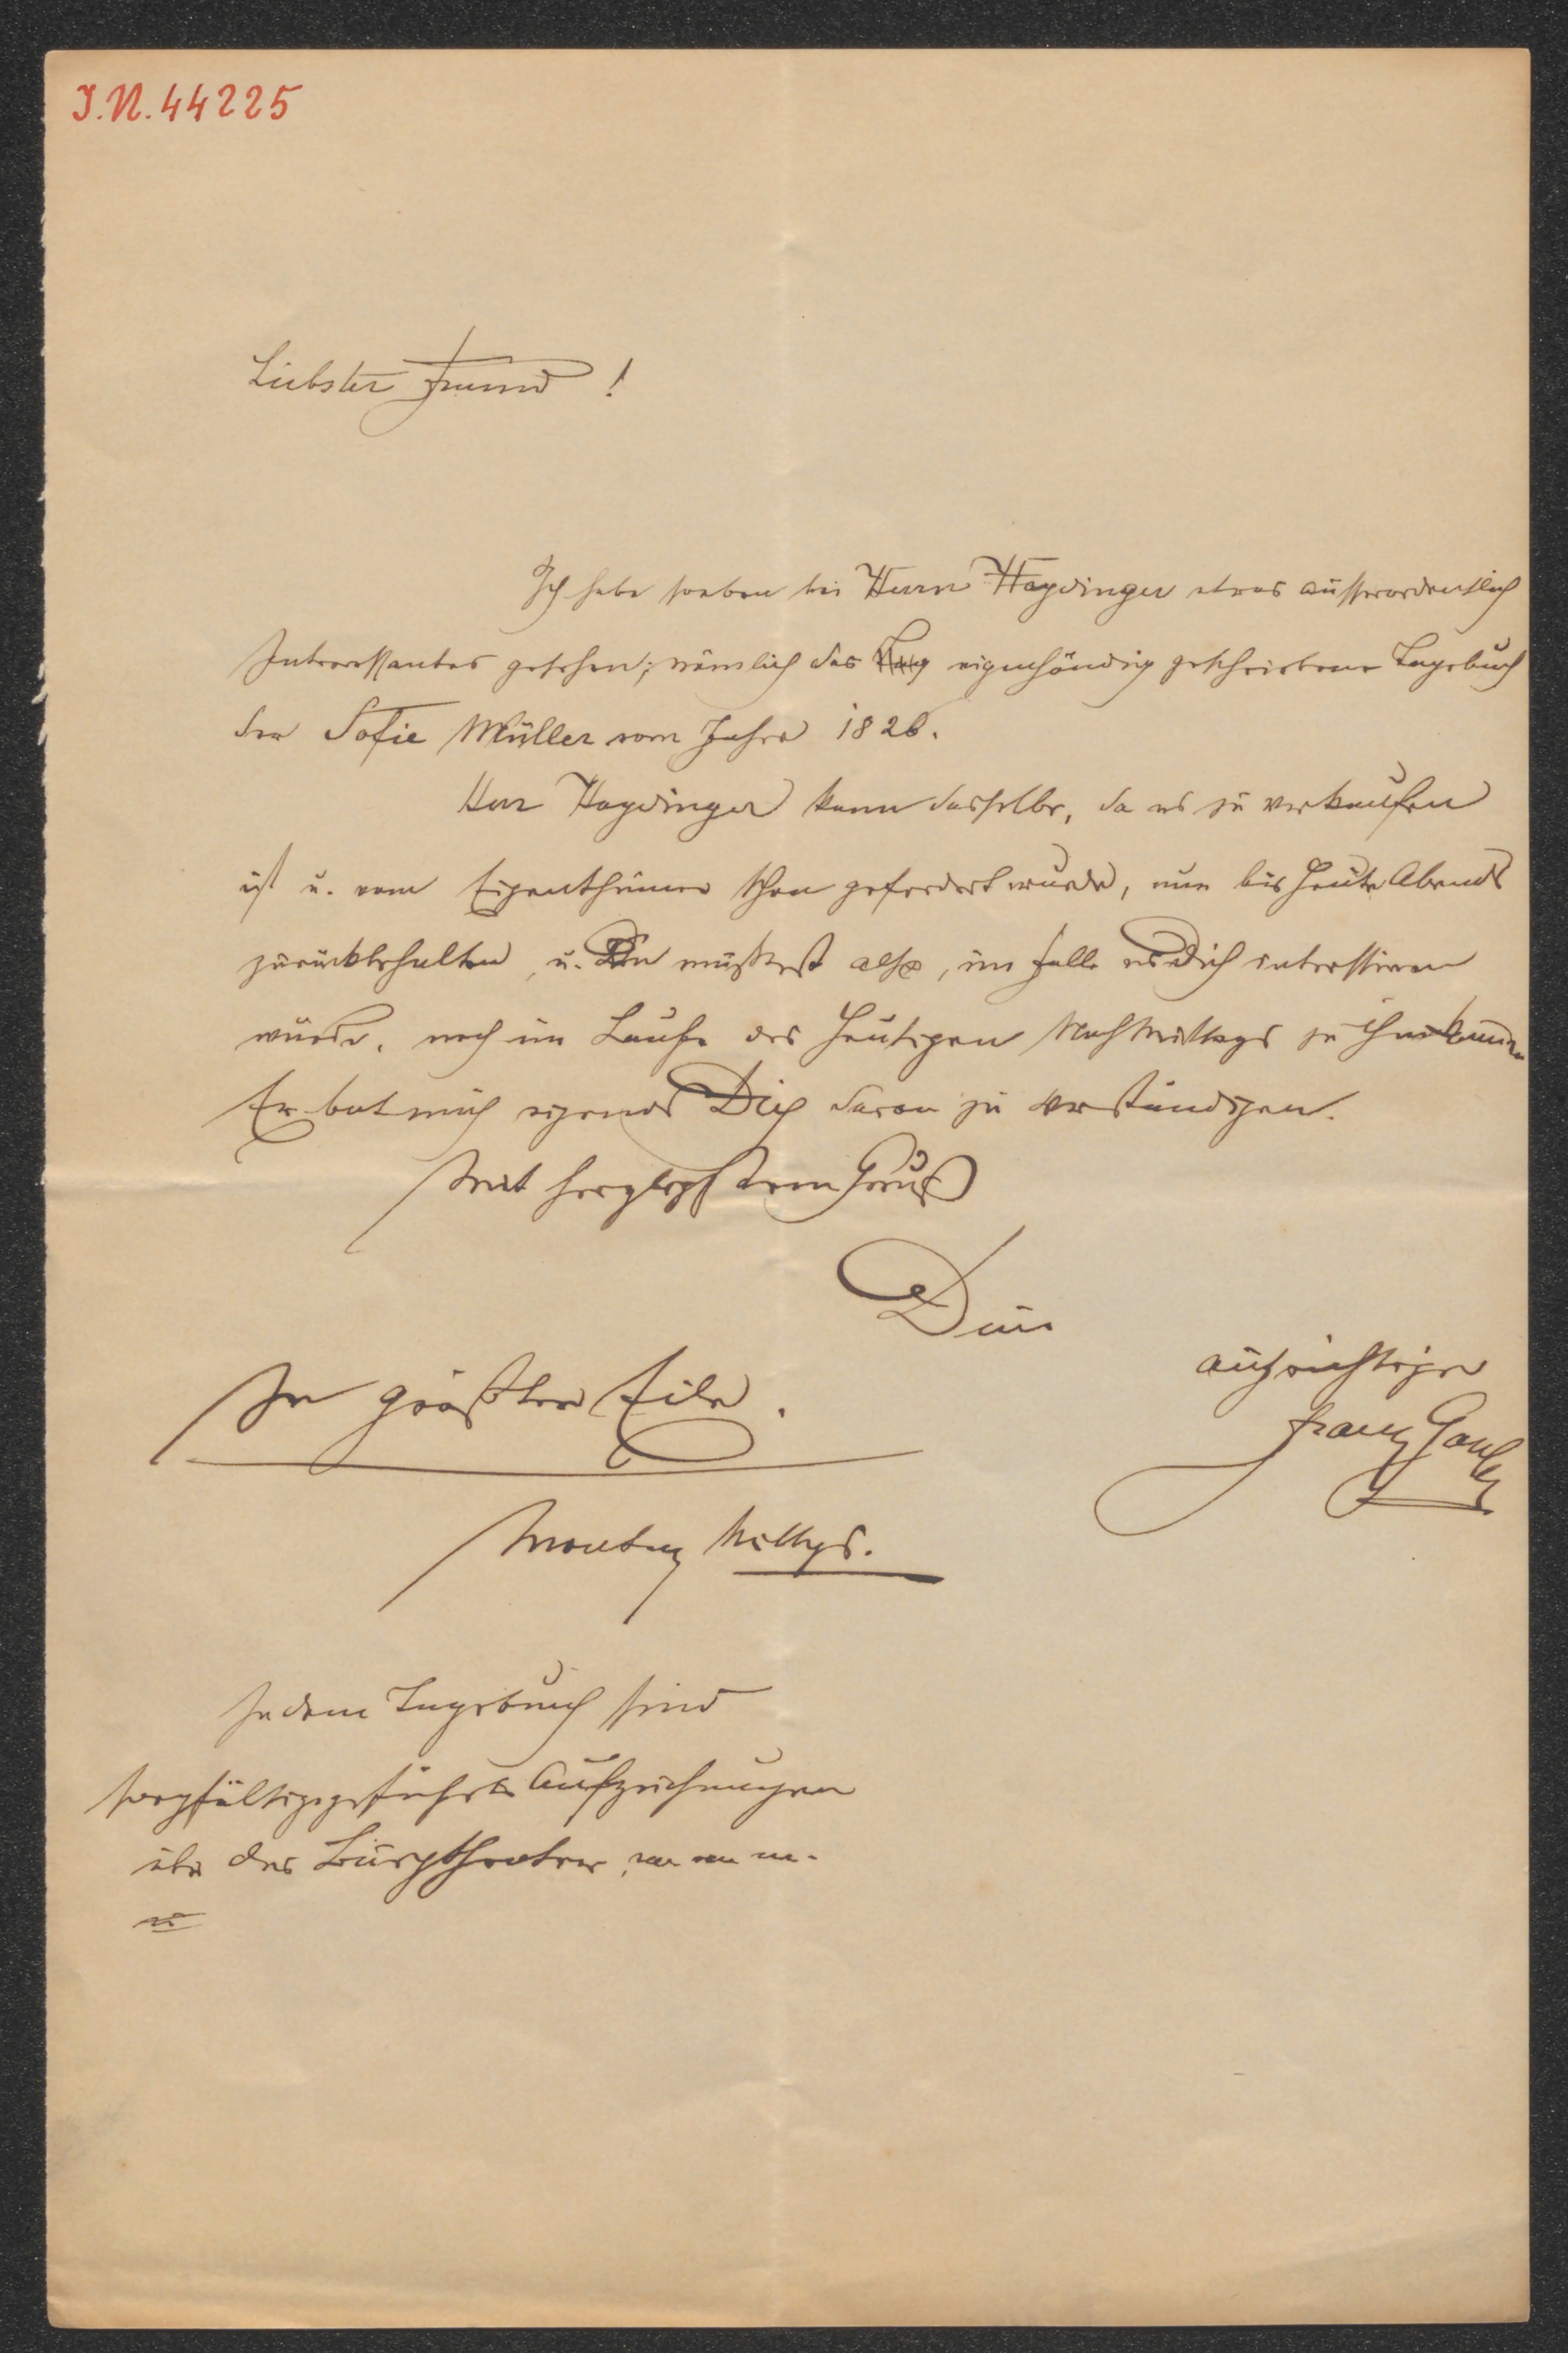 I.N. 44225
Liebster Freund !
Ich habe soeben bei Herrn Haydinger etwas ausserordentlich
Interessantes gesehen; nämlich das eigenhändig geschriebene Tagebuch
der Sofie Müller vom Jahre 1826.
Herr Haydinger kann dasselbe, da es zu verkaufen
ist u. vom Eigenthümer schon gefordert wurde, nur bis heute Abends
zurückbehalten, u. Du müßtest also, im Falle es Dich interessiren
würde, noch im Laufe des heutigen Nachmittags zu ihm kommen
Er bat mich eigends Dich davon zu verständigen.
Mit herzlichstem Gruß
Dein
aufrichtiger
Franz Gaul
In größter Eile.
Montag Mittags.
In dem Tagebuch sind
sorgfältig geführte Aufzeichnungen
über das Burgtheater